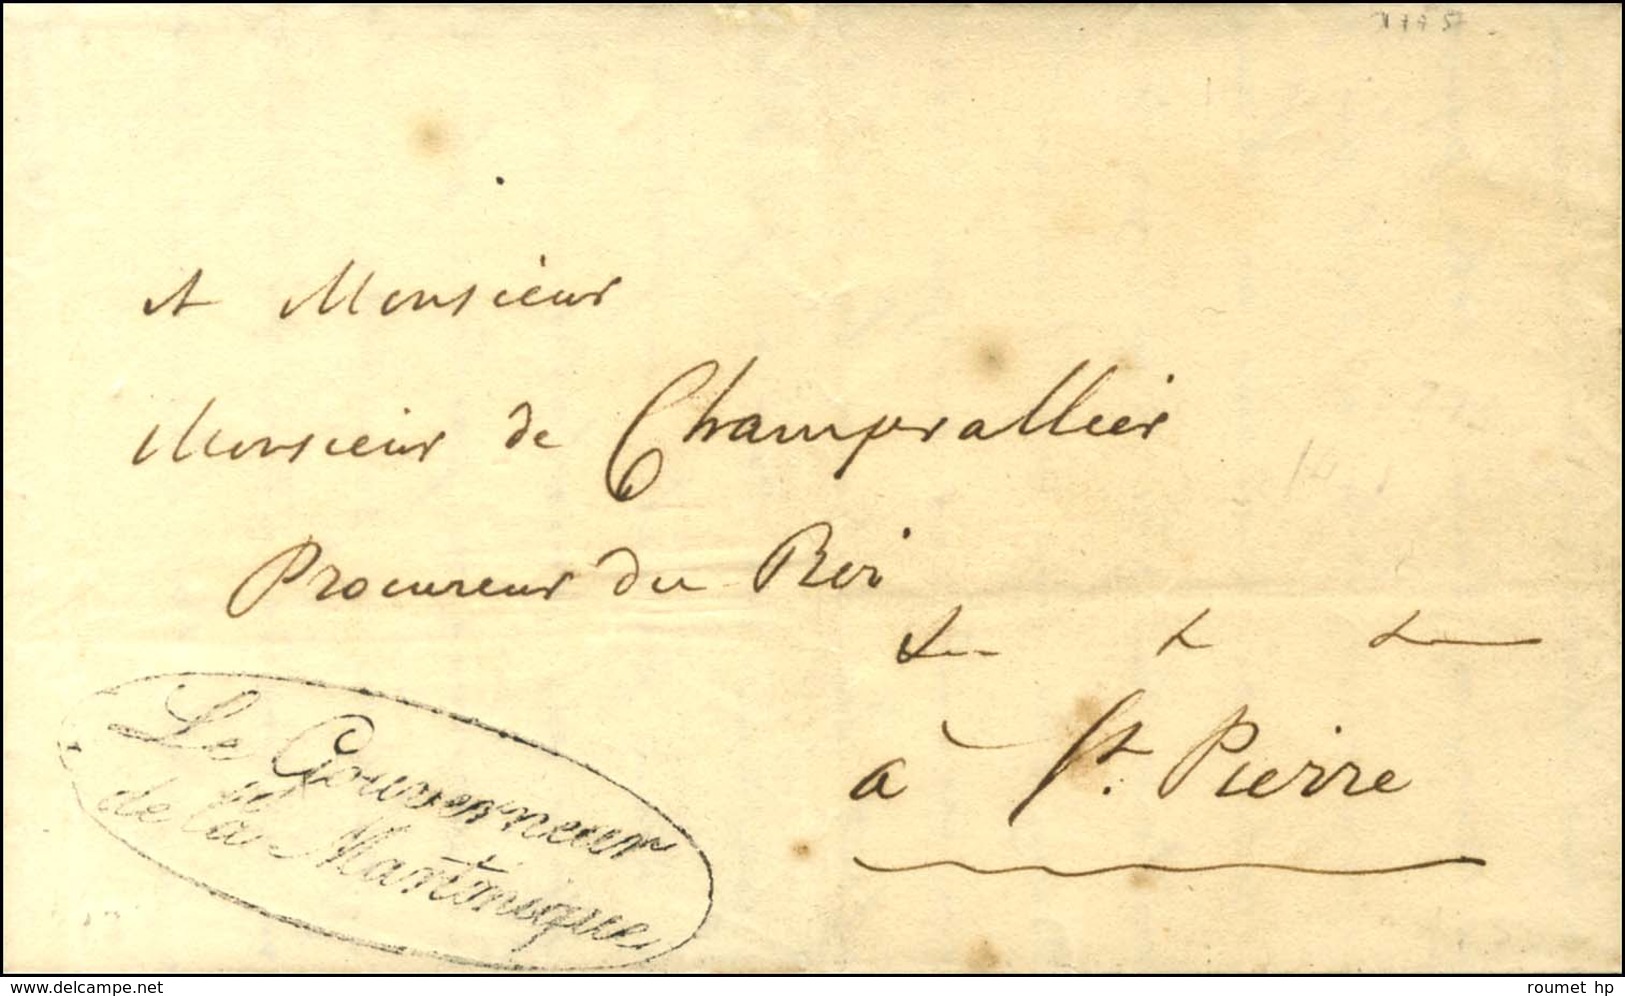 A Monsieur
Monsieur de Champvallier
Procureur du Roi
à St. Pierre
Le Gouverneur
de la Martinique
www.delcampe.net
roumet hp